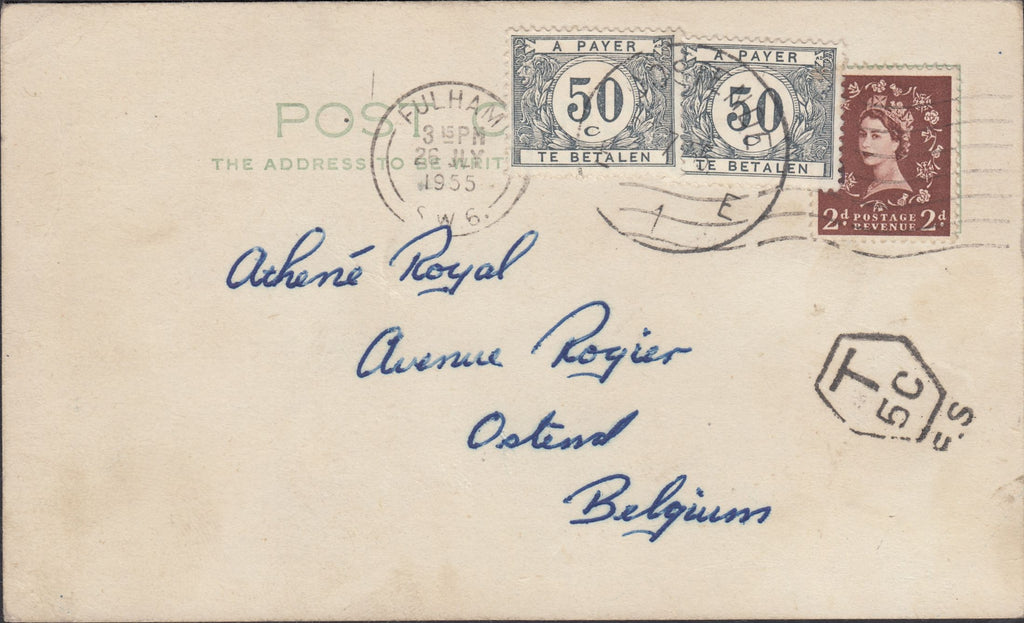 POST C
THE ADDRESS TO BE WRIT
FULHAM
3 15 PM
1955
S.W.6.
A PAYER
50
C
TE BETALEN
A PAYER
50
TE BETALEN
1 E
2d POSTAGE 2d
REVENUE
Athené Royal
Avenue Rogier
Ostend
Belgium
T
5C
F.S